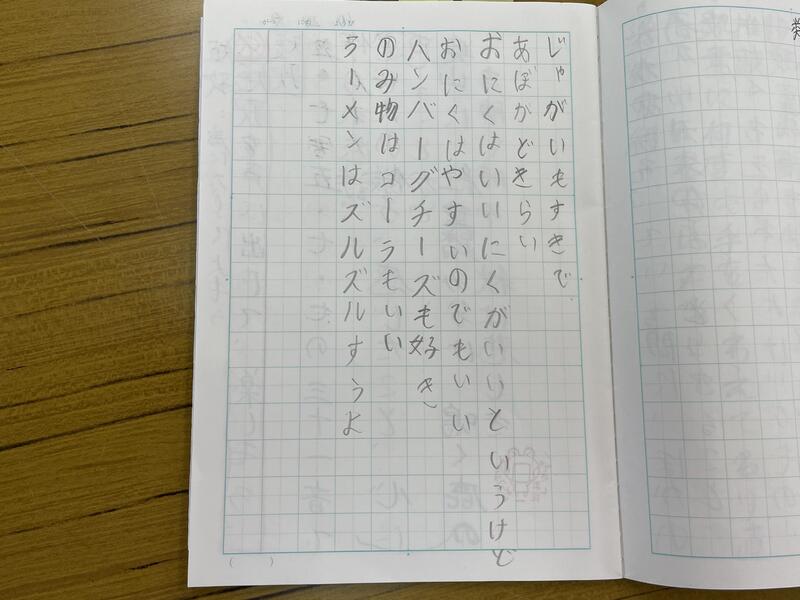 じゃがいもすきで
あぼかどきらい
おにくはいいにくがいいというけど
おにくはやすいのでもいい
ハンバーグチーズも好き
のみ物はコーラもいい
ラーメンはズルズルすうよ